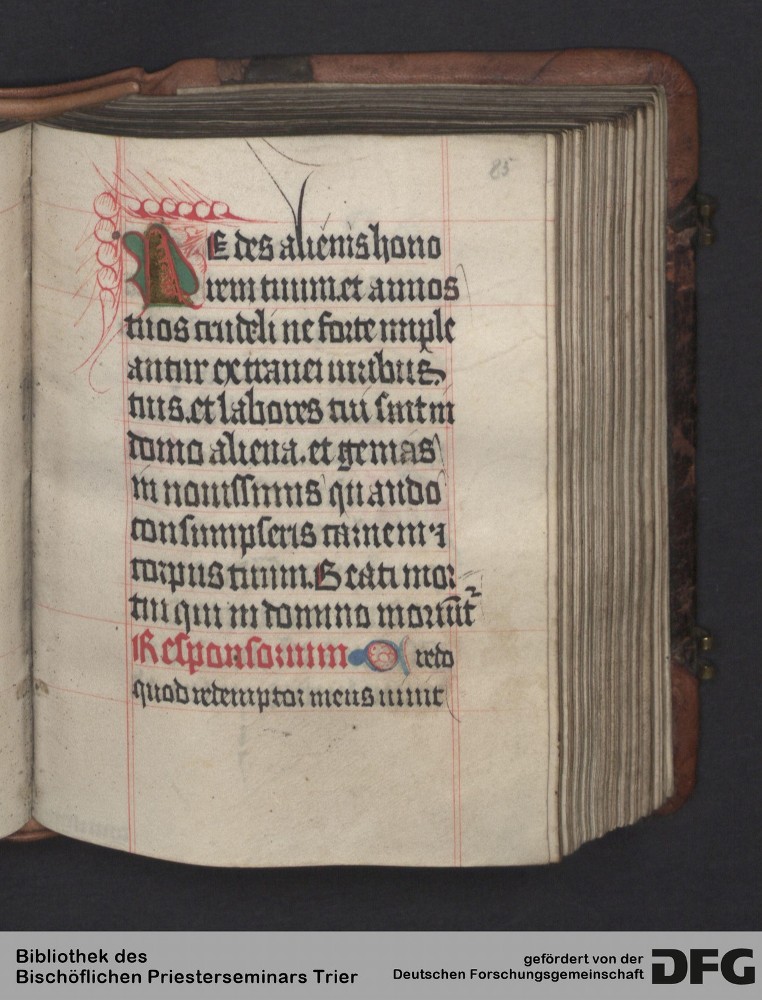 85
NE des alienis hono
rem tuum. et annos
tuos crudeli ne forte imple
antur extranei uiribus
tuis. et labores tui sint in
domo aliena. et gemas
in nouissimis quando
consumpseris carnem ⁊
corpus tuum. Beati mor
tui qui in domino moriūt᷑
Responsorium Credo
quod redemptor meus uiuit
Bibliothek des
Bischöflichen Priesterseminars Trier
gefördert von der
Deutschen Forschungsgemeinschaft
DFG